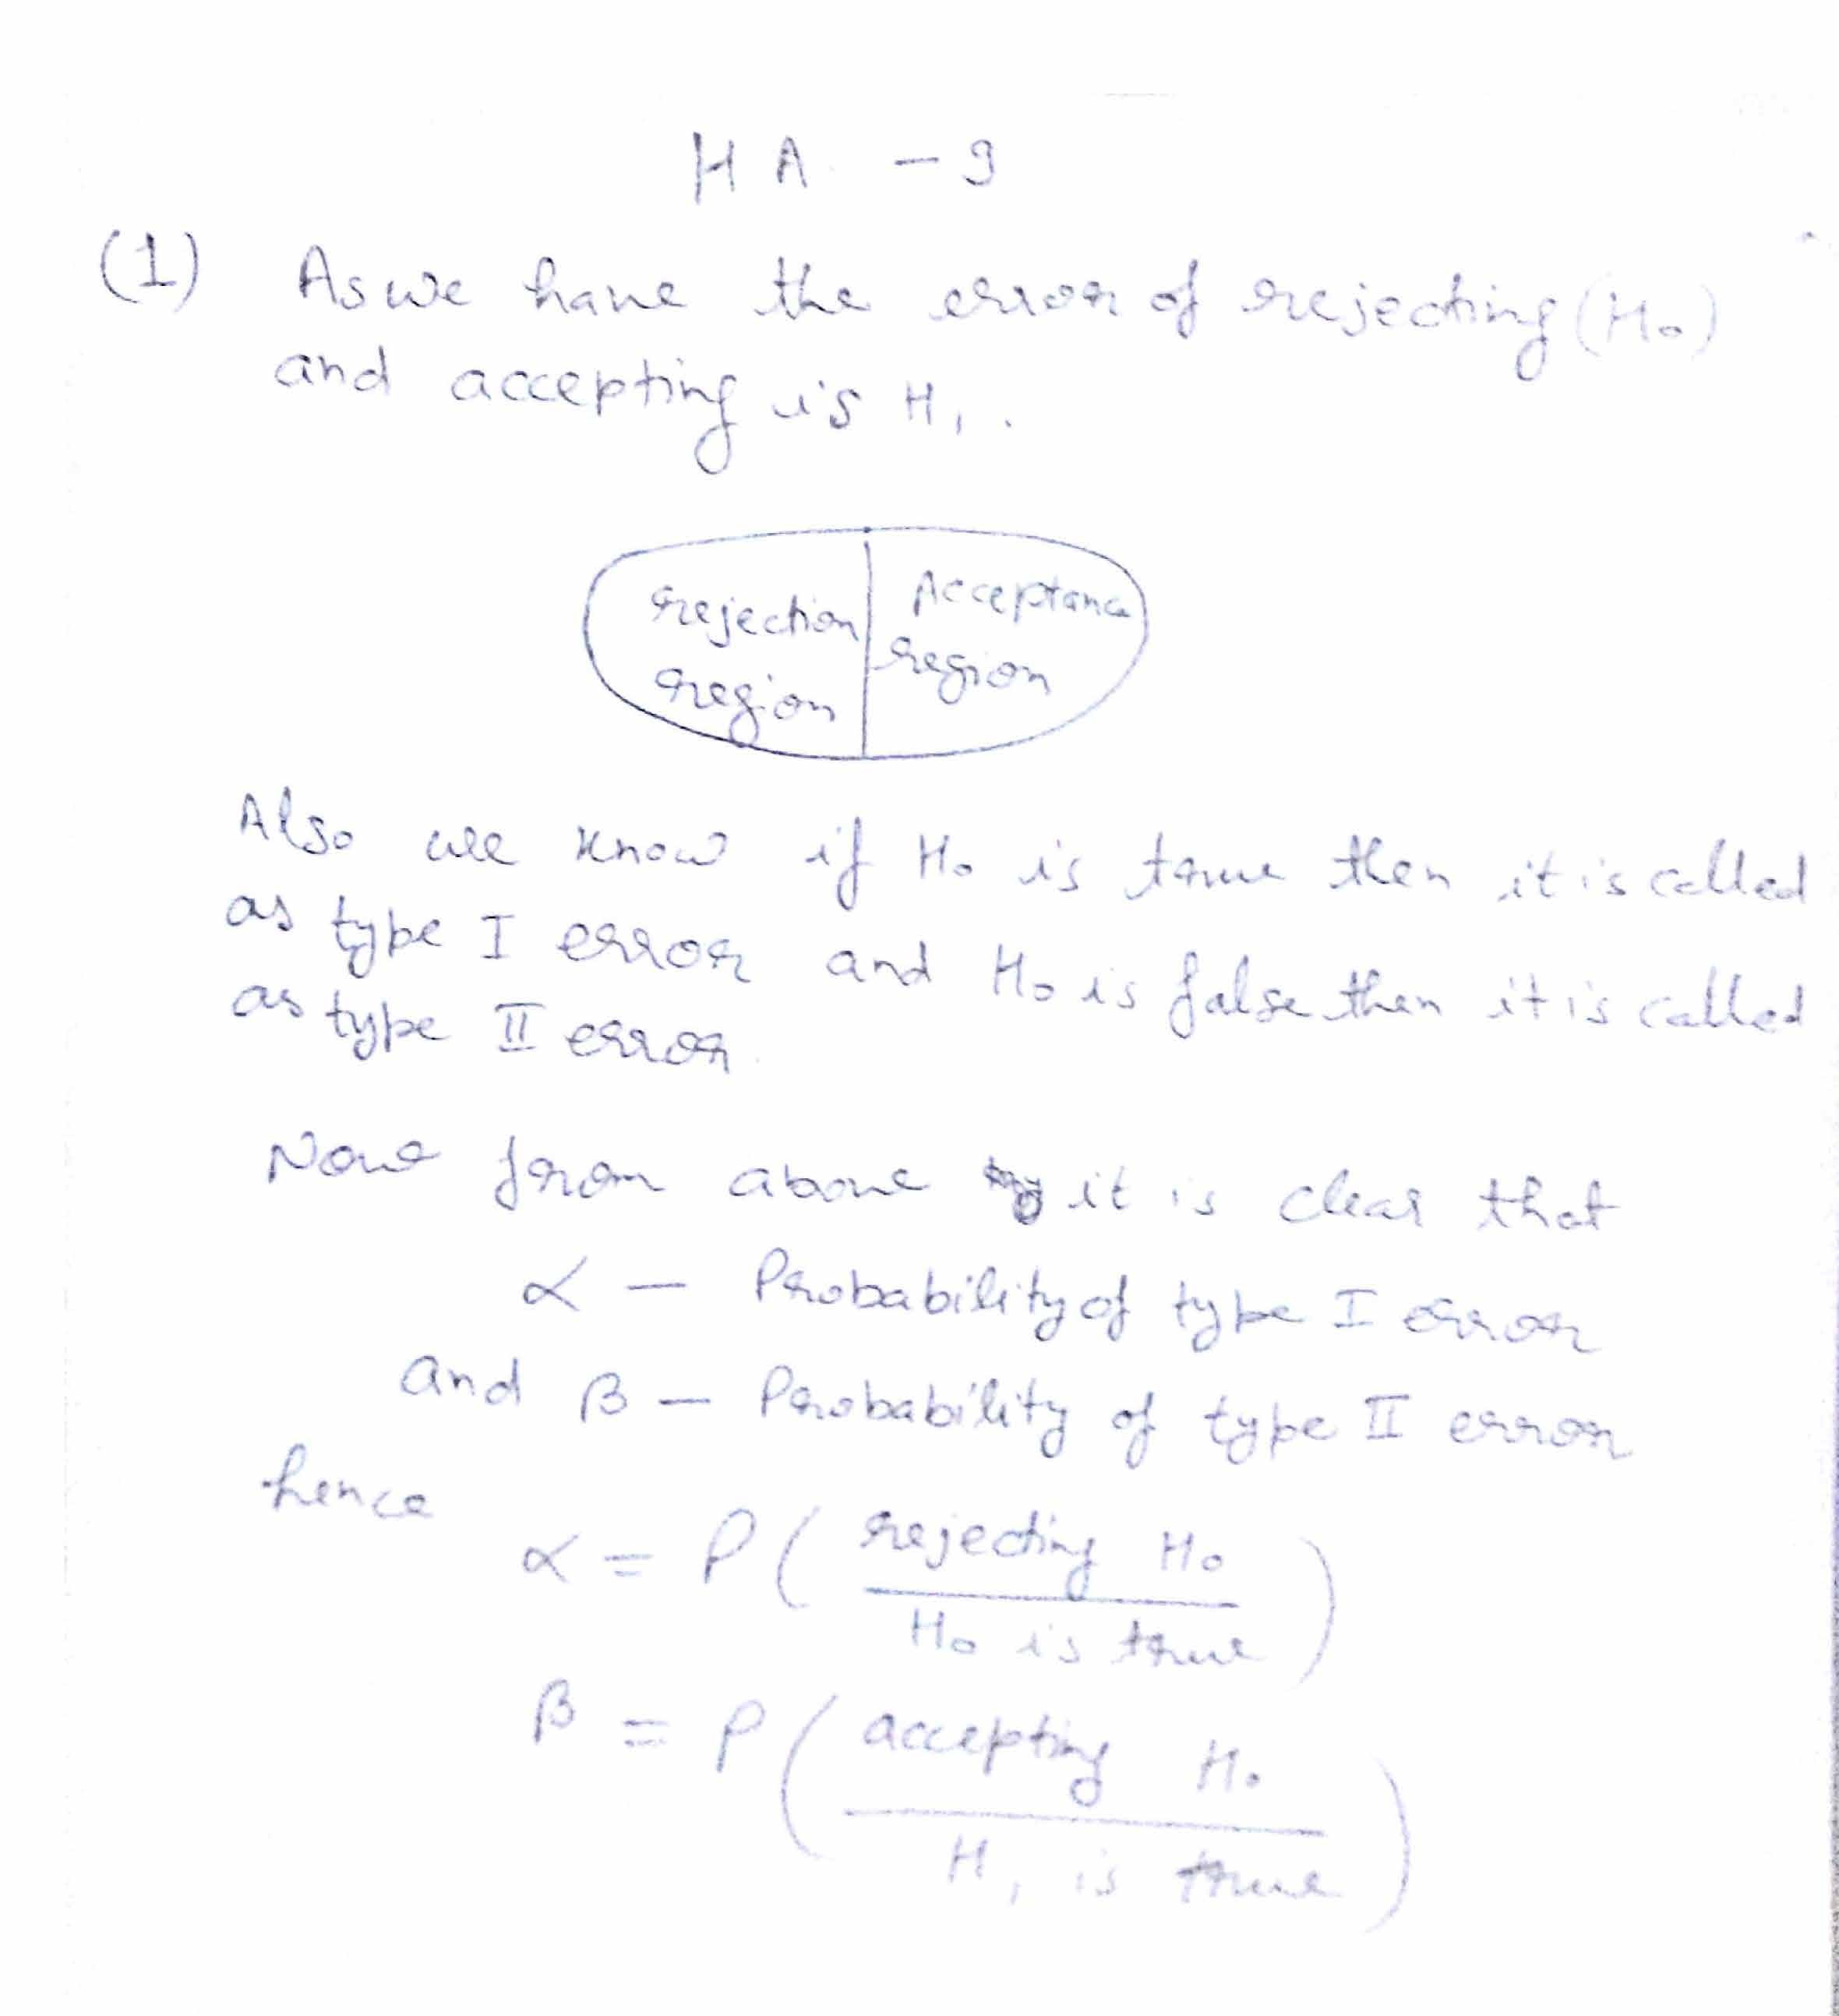 HA - 9
(1) As we have the error of rejecting (H₀)
and accepting is H₁.
rejection
region
Acceptance
region
Also we know if H₀ is true then it is called
as type I error and H₀ is false then it is called
as type II error.
Now from above it is clear that
α - Probability of type I error
and β - Probability of type II error
hence
α = P ( rejecting H₀
H₀ is true )
β = P ( accepting H₀
H₁ is true )